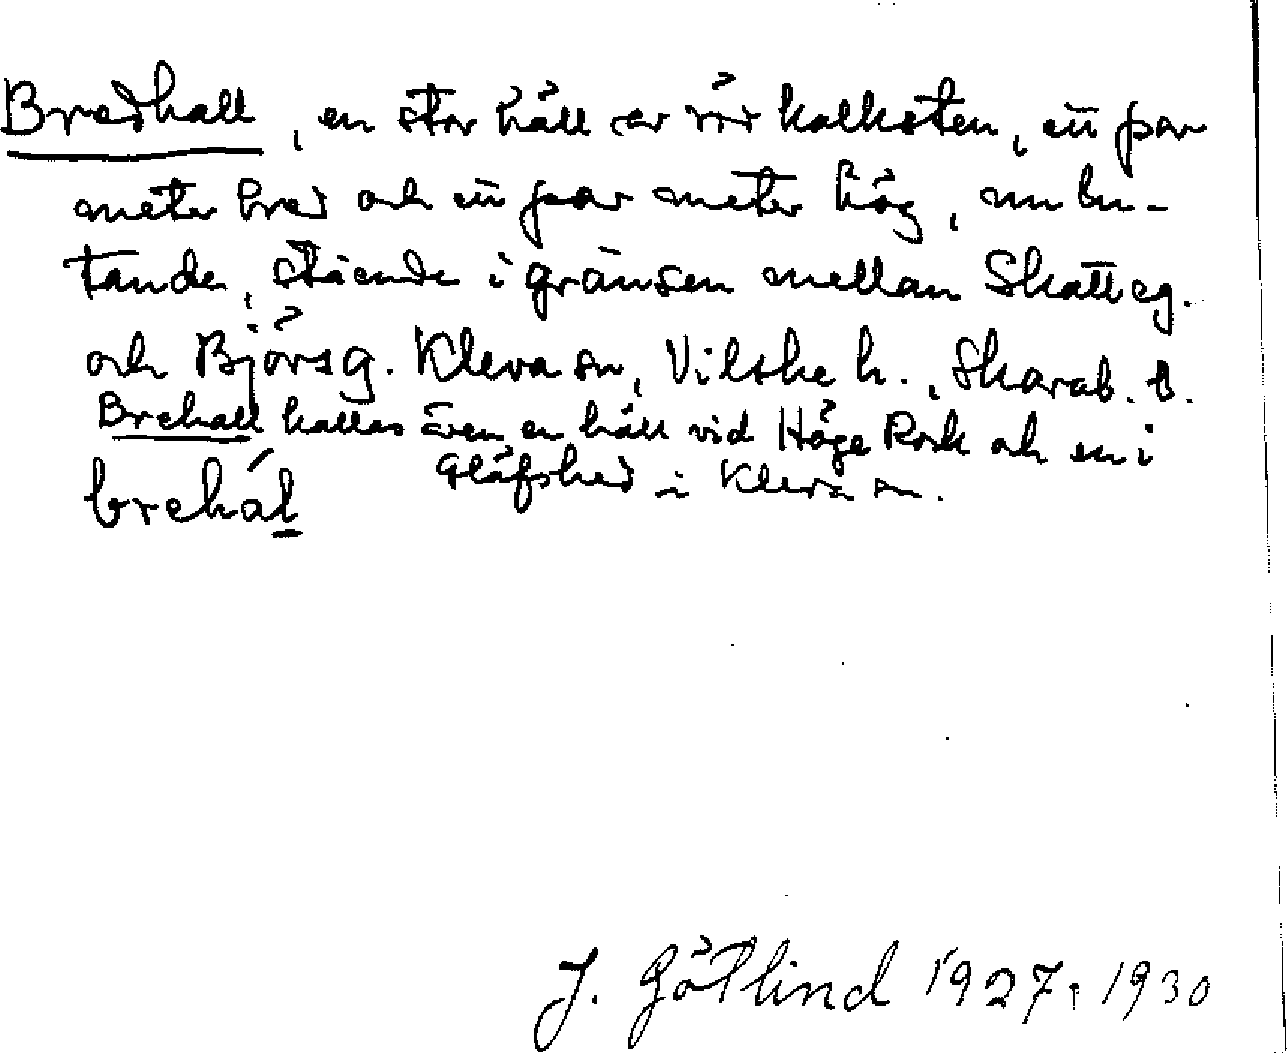 Bredhall, en stor häll av röd kalksten, ett par
meter bred och ett par meter hög, nu lu-
tande, stående i gränsen mellan Skatteg.
och Björsg. Kleva sn, Vilske h., Skarab. l.
Brehall kallas även en häll vid Höge Rock och en i
Gläfshed i Kleva sn.
brehál
J. Götlind 1927, 1930